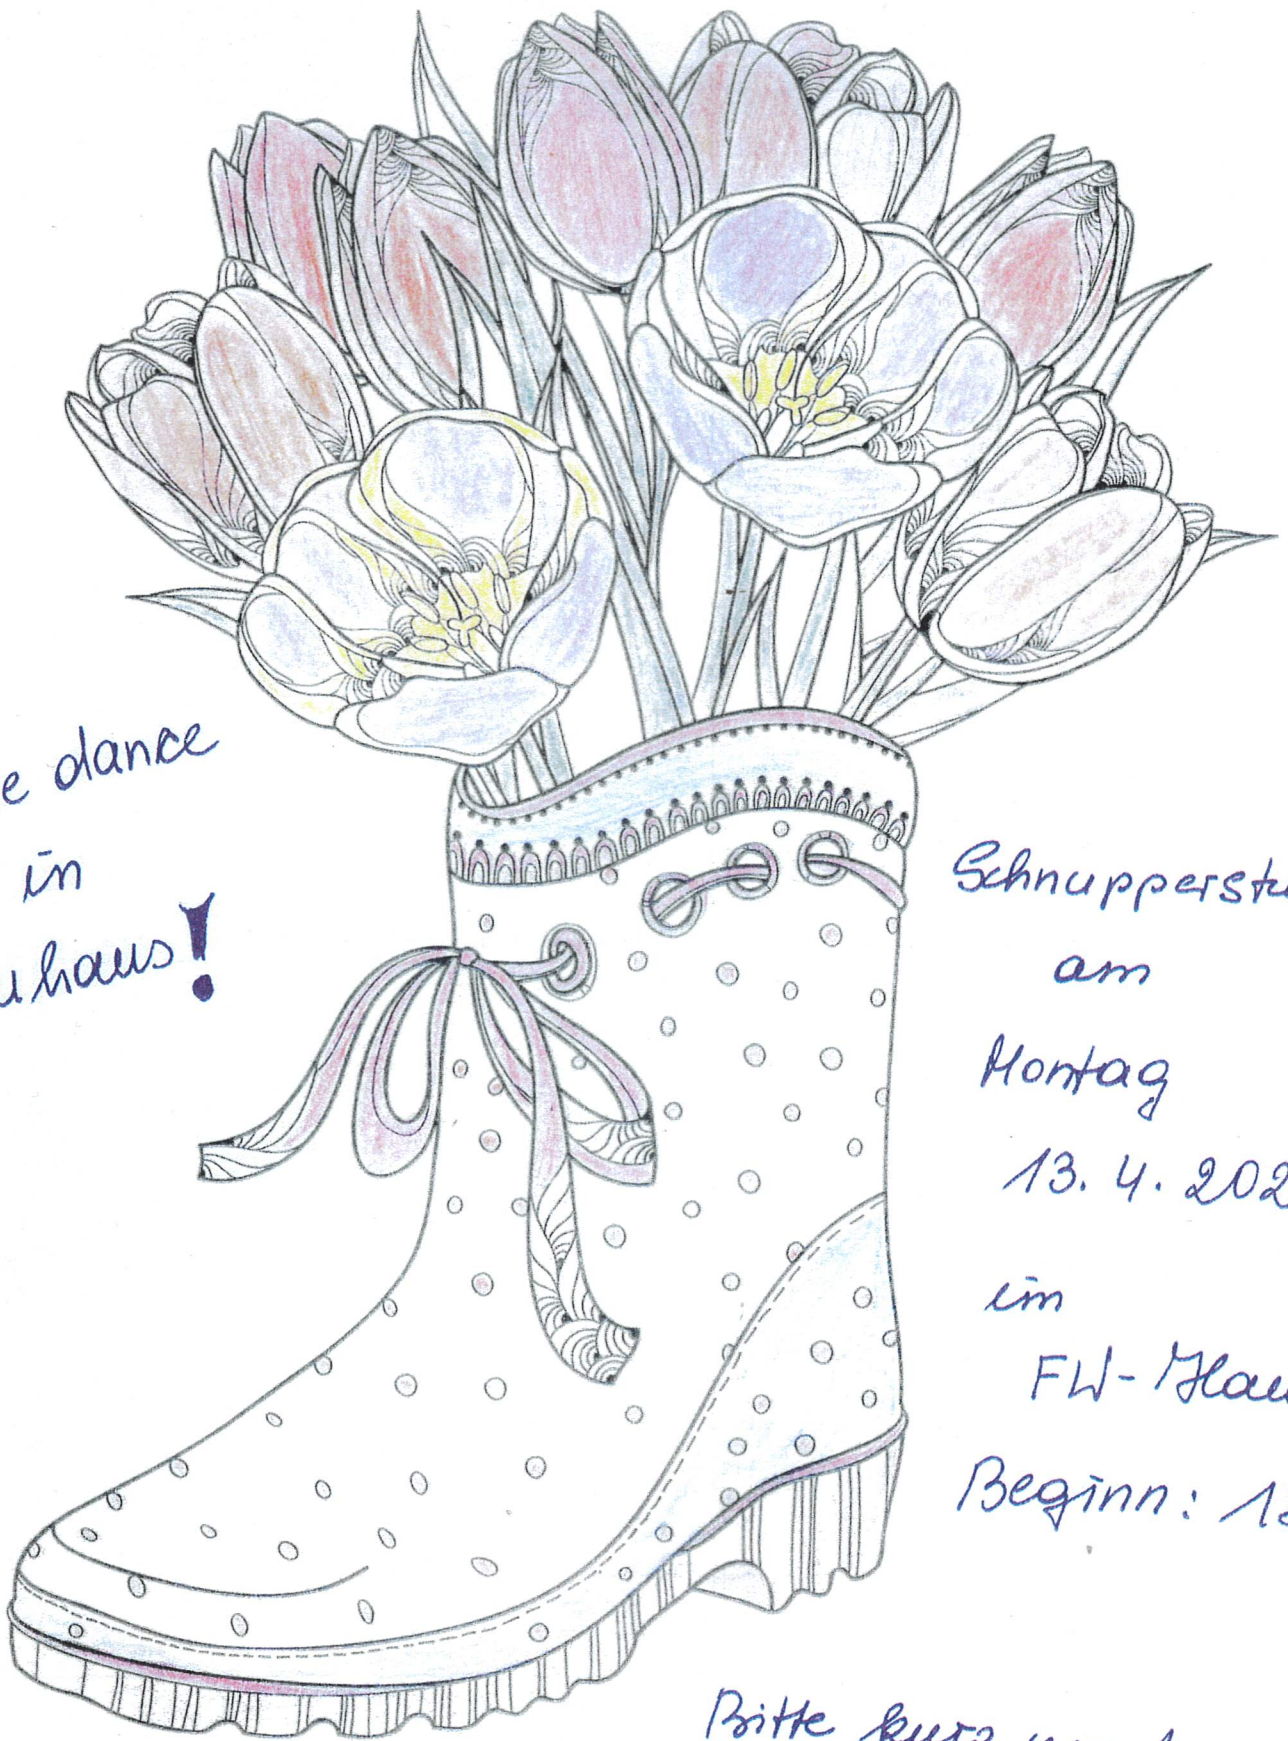 e dance
in
uhaus!
Schnupperstu
am
Montag
13. 4. 202
im
FW-Hau
Beginn: 1
Bitte kurz